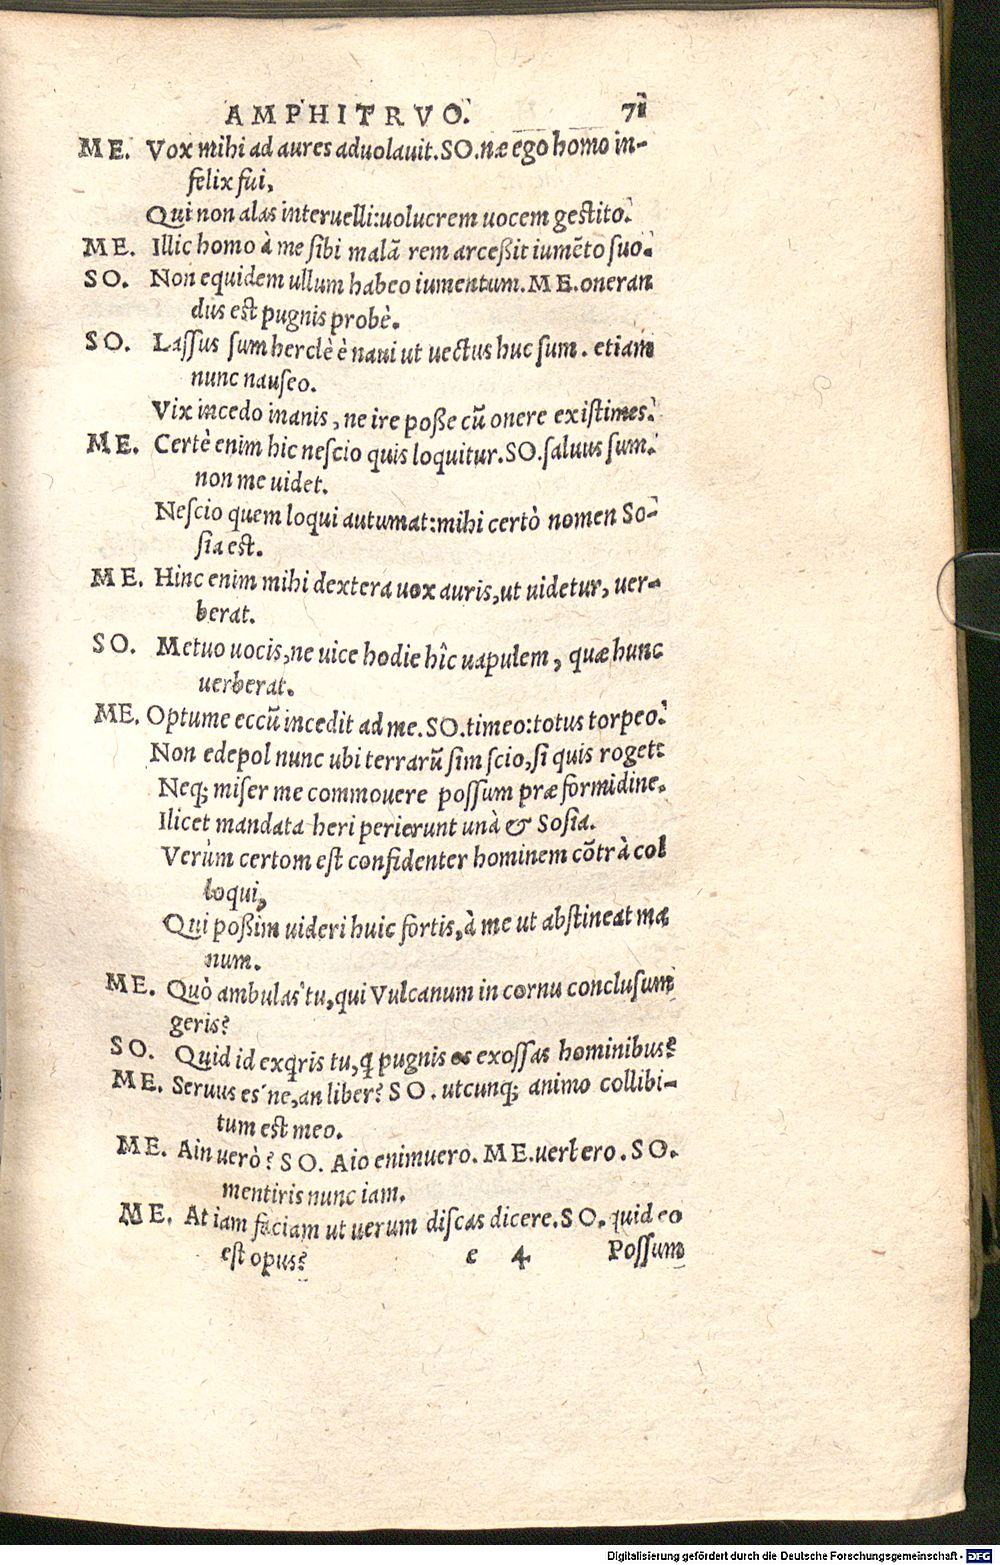 AMPHITRVO. 71
ME. Vox mihi ad aures aduolauit. SO. næ ego homo in-
felix fui,
Qui non alas interuelli: uolucrem uocem gestito.
ME. Illic homo à me sibi malã rem arceßit iumẽto suo.
SO. Non equidem ullum habeo iumentum. ME. oneran
dus est pugnis probè.
SO. Lassus sum herclè è naui ut uectus huc sum. etiam
nunc nauseo.
Vix incedo inanis, ne ire poße cũ onere existimes.
ME. Certè enim hic nescio quis loquitur. SO. saluus sum.
non me uidet.
Nescio quem loqui autumat: mihi certò nomen So-
sia est.
ME. Hinc enim mihi dextera uox auris, ut uidetur, uer-
berat.
SO. Metuo uocis, ne uice hodie hîc uapulem, quæ hunc
uerberat.
ME. Optume eccũ incedit ad me. SO. timeo: totus torpeo.
Non edepol nunc ubi terrarũ sim scio, si quis roget:
Neq; miser me commouere possum præ formidine.
Ilicet mandata heri perierunt unà & Sosia.
Verùm certom est confidenter hominem cõtrà col
loqui,
Qui poßim uideri huic fortis, à me ut abstineat ma
num.
ME. Quò ambulas tu, qui Vulcanum in cornu conclusum
geris?
SO. Quid id exq̃ris tu, q̃ pugnis os exossas hominibus?
ME. Seruus es'ne, an liber? SO. utcunq; animo collibi-
tum est meo.
ME. Ain uerò? SO. Aio enimuero. ME. uerbero. SO.
mentiris nunc iam.
ME. At iam faciam ut uerum discas dicere. SO. quid eo
est opus?
e 4 Possum
Digitalisierung gefördert durch die Deutsche Forschungsgemeinschaft - DFG